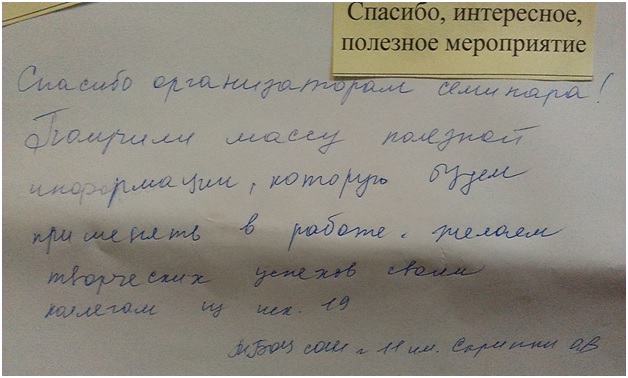 Спасибо, интересное,
полезное мероприятие
Спасибо организаторам семинара!
Получили массу полезной
информации, которую будем
применять в работе. Желаем
творческих успехов своим
коллегам из шк. 19
МБОУ СОШ 11 им.